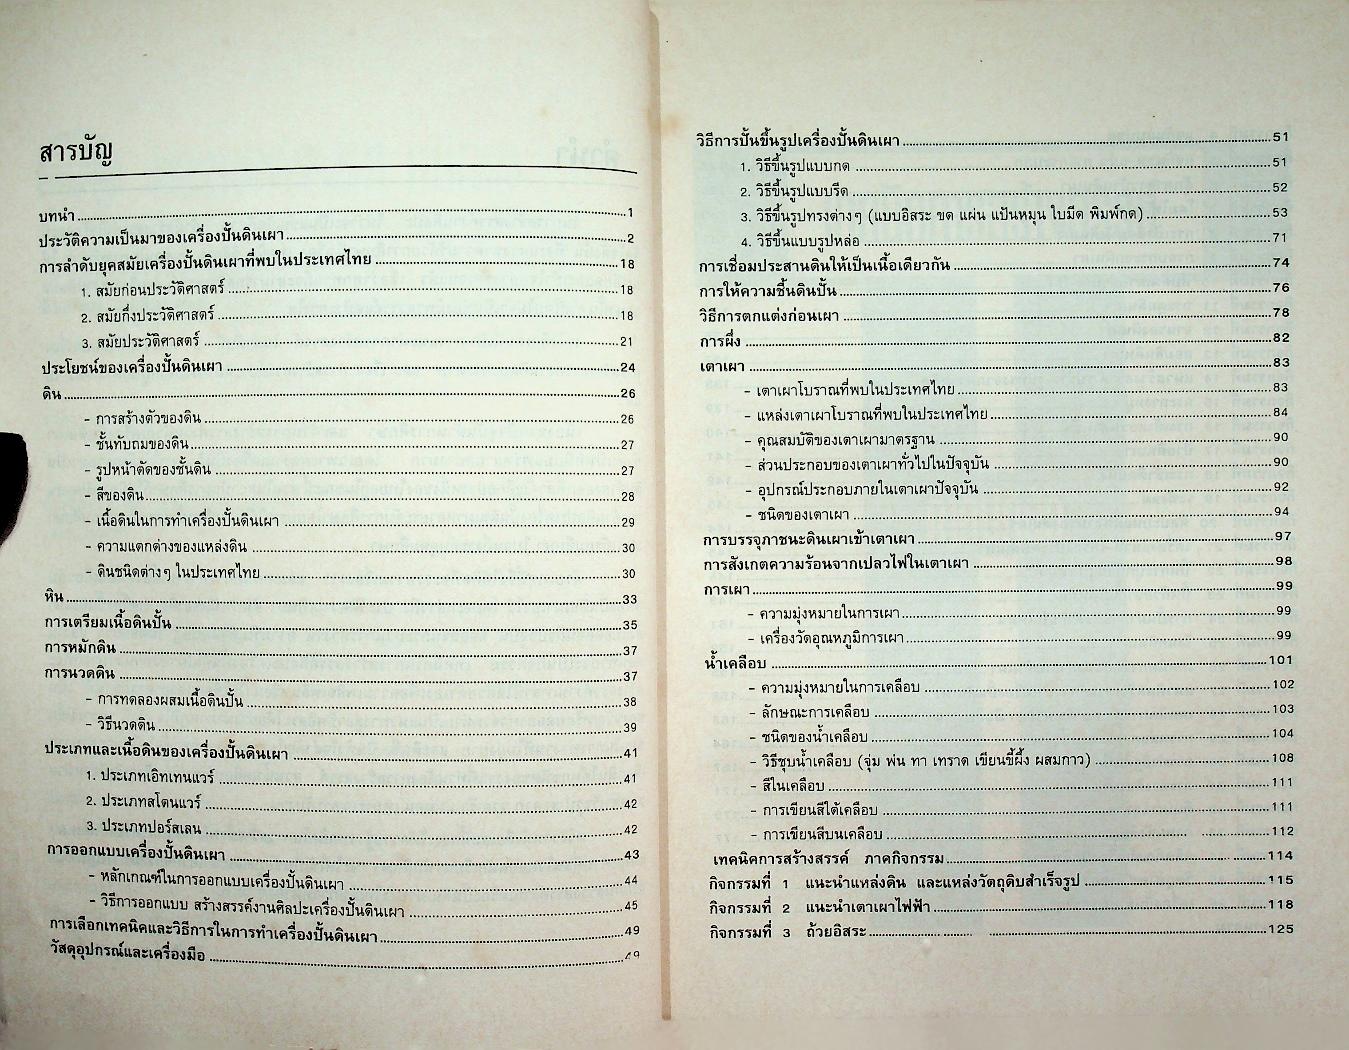 สารบัญ
บทนำ 1
ประวัติความเป็นมาของเครื่องปั้นดินเผา 2
การลำดับยุคสมัยเครื่องปั้นดินเผาที่พบในประเทศไทย 18
1. สมัยก่อนประวัติศาสตร์ 18
2. สมัยกึ่งประวัติศาสตร์ 18
3. สมัยประวัติศาสตร์ 21
ประโยชน์ของเครื่องปั้นดินเผา 24
ดิน 26
- การสร้างตัวของดิน 26
- ชั้นทับถมของดิน 27
- รูปหน้าตัดของชั้นดิน 27
- สีของดิน 28
- เนื้อดินในการทำเครื่องปั้นดินเผา 29
- ความแตกต่างของแหล่งดิน 30
- ดินชนิดต่างๆ ในประเทศไทย 30
หิน 33
การเตรียมเนื้อดินปั้น 35
การหมักดิน 37
การนวดดิน 37
- การทดลองผสมเนื้อดินปั้น 38
- วิธีนวดดิน 39
ประเภทและเนื้อดินของเครื่องปั้นดินเผา 41
1. ประเภทเอิทเทนแวร์ 41
2. ประเภทสโตนแวร์ 42
3. ประเภทปอร์สเลน 42
การออกแบบเครื่องปั้นดินเผา 43
- หลักเกณฑ์ในการออกแบบเครื่องปั้นดินเผา 44
- วิธีการออกแบบ สร้างสรรค์งานศิลปะเครื่องปั้นดินเผา 45
การเลือกเทคนิคและวิธีการในการทำเครื่องปั้นดินเผา 49
วัสดุอุปกรณ์และเครื่องมือ 49
วิธีการปั้นขึ้นรูปเครื่องปั้นดินเผา 51
1. วิธีขึ้นรูปแบบกด 51
2. วิธีขึ้นรูปแบบรีด 52
3. วิธีขึ้นรูปทรงต่างๆ (แบบอิสระ ขด แผ่น แป้นหมุน ใบมีด พิมพ์กด) 53
4. วิธีขึ้นแบบรูปหล่อ 71
การเชื่อมประสานดินให้เป็นเนื้อเดียวกัน 74
การให้ความชื้นดินปั้น 76
วิธีการตกแต่งก่อนเผา 78
การผึ่ง 82
เตาเผา 83
- เตาเผาโบราณที่พบในประเทศไทย 83
- แหล่งเตาเผาโบราณที่พบในประเทศไทย 84
- คุณสมบัติของเตาเผามาตรฐาน 90
- ส่วนประกอบของเตาเผาทั่วไปในปัจจุบัน 90
- อุปกรณ์ประกอบภายในเตาเผาปัจจุบัน 92
- ชนิดของเตาเผา 94
การบรรจุภาชนะดินเผาเข้าเตาเผา 97
การสังเกตความร้อนจากเปลวไฟในเตาเผา 98
การเผา 99
- ความมุ่งหมายในการเผา 99
- เครื่องวัดอุณหภูมิการเผา 99
น้ำเคลือบ 101
- ความมุ่งหมายในการเคลือบ 102
- ลักษณะการเคลือบ 103
- ชนิดของน้ำเคลือบ 104
- วิธีชุบน้ำเคลือบ (จุ่ม พ่น ทา เทราด เขียนขี้ผึ้ง ผสมกาว) 108
- สีในเคลือบ 111
- การเขียนสีใต้เคลือบ 111
- การเขียนสีบนเคลือบ 112
เทคนิคการสร้างสรรค์ ภาคกิจกรรม 114
กิจกรรมที่ 1 แนะนำแหล่งดิน และแหล่งวัตถุดิบสำเร็จรูป 115
กิจกรรมที่ 2 แนะนำเตาเผาไฟฟ้า 118
กิจกรรมที่ 3 ถ้วยอิสระ 125